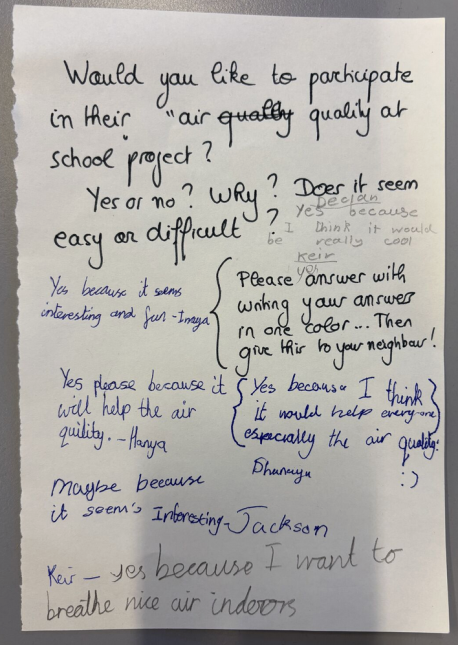 Would you like to participate
in their "air quality quality at
school" project?
Yes or no? Why? Does it seem
easy or difficult?
Declan
Yes because
I think it would
be really cool
Keir
yes
Please answer with
writing your answer
in one color... Then
give this to your neighbour!
Yes because it seems
interesting and fun - Inaya
Yes please because it
will help the air
quility. - Hanya
Yes because I think
it would help everyone
especially the air quality.
:)
Maybe because
it seem's Interesting - Jackson
Keir - yes because I want to
breathe nice air indoors